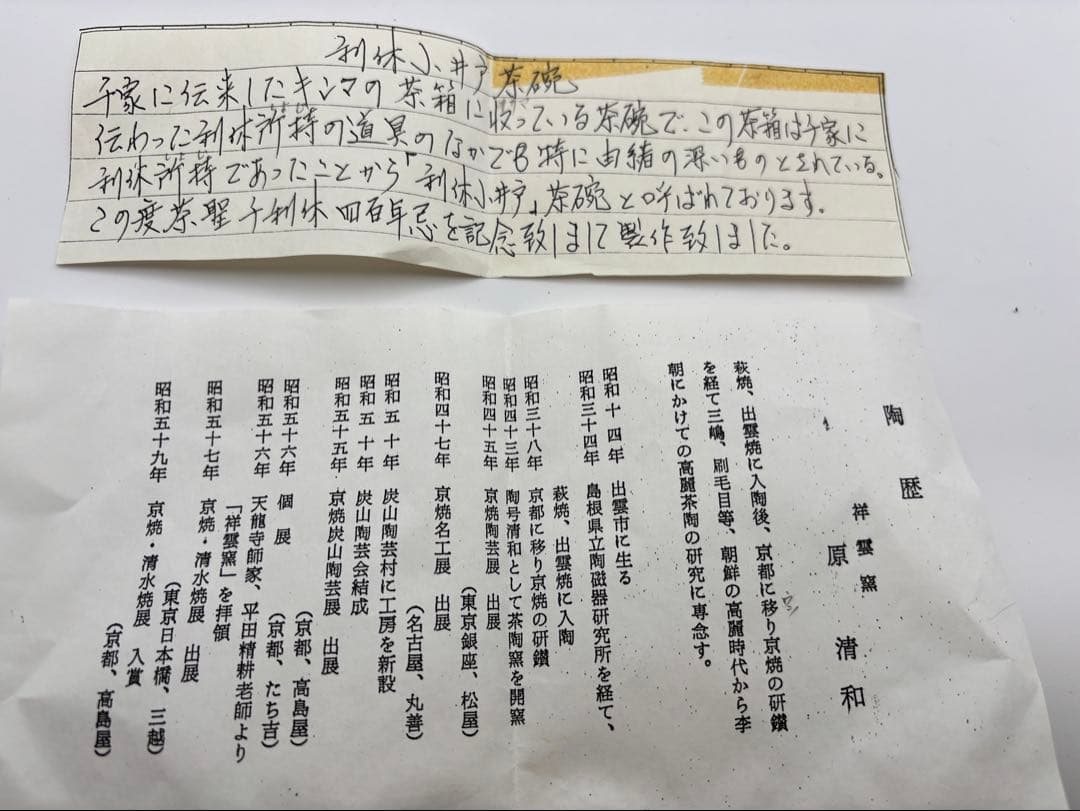 利休小井戸茶碗
千家に伝来したキンマの茶箱に収っている茶碗で、この茶箱は千家に
伝わった利休所持の道具のなかでも特に由緒の深いものとされている。
利休所持であったことから「利休小井戸」茶碗と呼ばれております。
この度茶聖千利休四百年忌を記念致しまして製作致しました。
陶歴
祥雲窯
原清和
萩焼、出雲焼に入陶後、京都に移り京焼の研鑽
を経て三嶋、刷毛目等、朝鮮の高麗時代から李
朝にかけての高麗茶陶の研究に専念す。
昭和十四年 出雲市に生る
昭和三十四年 島根県立陶磁器研究所を経て、
萩焼、出雲焼に入陶
昭和三十八年 京都に移り京焼の研鑽
昭和四十三年 陶号清和として茶陶窯を開窯
昭和四十五年 京焼陶芸展 出展
(東京銀座、松屋)
昭和四十七年 京焼名工展 出展
(名古屋、丸善)
昭和五十年 炭山陶芸村に工房を新設
昭和五十年 炭山陶芸会結成
昭和五十五年 京焼炭山陶芸展 出展
(京都、高島屋)
昭和五十六年 個展
(京都、たち吉)
昭和五十六年 天龍寺師家、平田精耕老師より
「祥雲窯」を拝領
昭和五十七年 京焼・清水焼展 出展
(東京日本橋、三越)
昭和五十九年 京焼・清水焼展 入賞
(京都、高島屋)